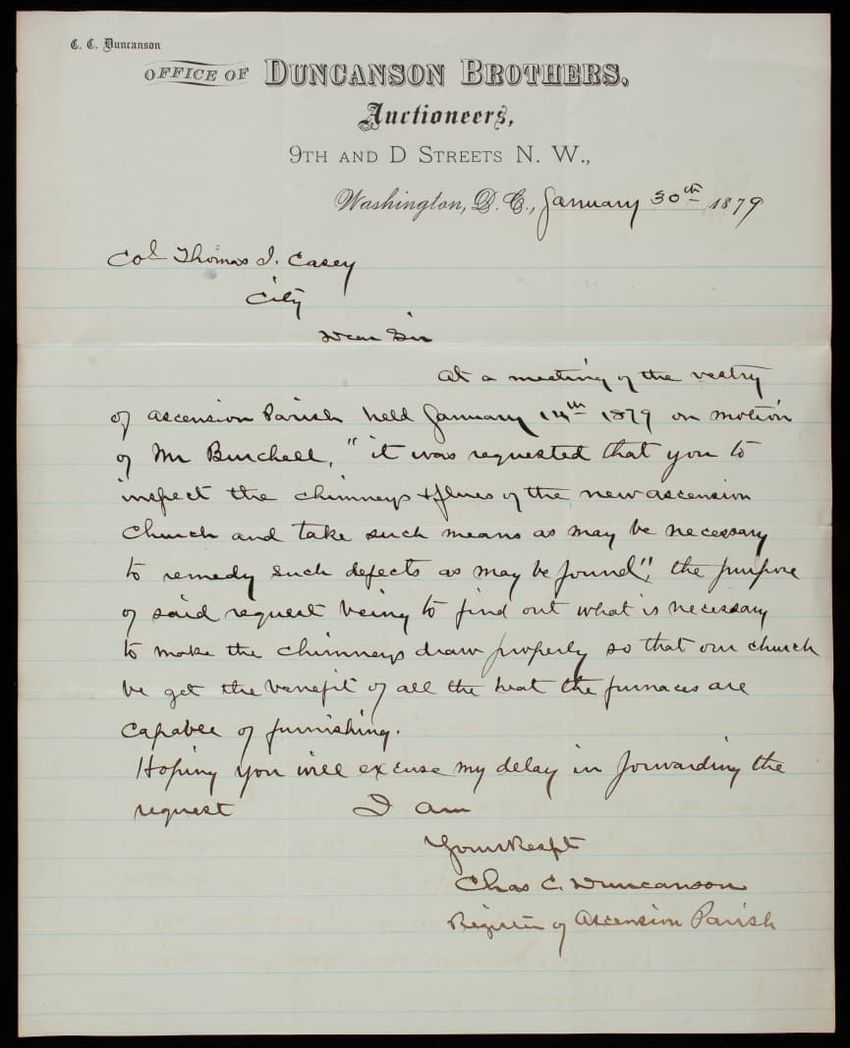 C. C. Duncanson
OFFICE OF DUNCANSON BROTHERS,
Auctioneers,
9TH AND D STREETS N. W.,
Washington, D. C., January 30th 1879
Col Thomas I. Casey
City
Dear Sir
At a meeting of the vestry
of Ascension Parish held January 14th 1879 on motion
of Mr Burchell, "it was requested that you to
inspect the chimneys & flues of the new ascension
Church and take such means as may be necessary
to remedy such defects as may be found", the purpose
of said request being to find out what is necessary
to make the chimneys draw properly so that our church
be get the benefit of all the heat the furnaces are
capable of furnishing.
Hoping you will excuse my delay in forwarding the
request I am
Yours Respt
Chas C. Duncanson
Register of Ascension Parish